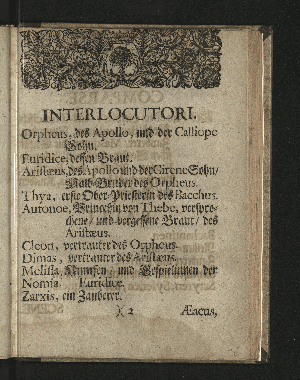 INTERLOCUTORI.
Orpheus, des Apollo, und der Calliope
Sohn.
Euridice, dessen Braut.
Aristæus, des Apollo und der Cirene Sohn/
Halb-Bruder des Orpheus.
Thya, erste Ober-Priesterin des Bacchus.
Autonoe, Princeßin von Thebe, verspro-
chene/ und vergessene Braut/ des
Aristæus.
Cleon, vertrauter des Orpheus.
Dimas, vertrauter des Aristæus.
Melissa, Nymfen, und Gespielinnen der
Nomia Euridice.
Zarxis, ein Zauberer.
)( 2 Æacus,